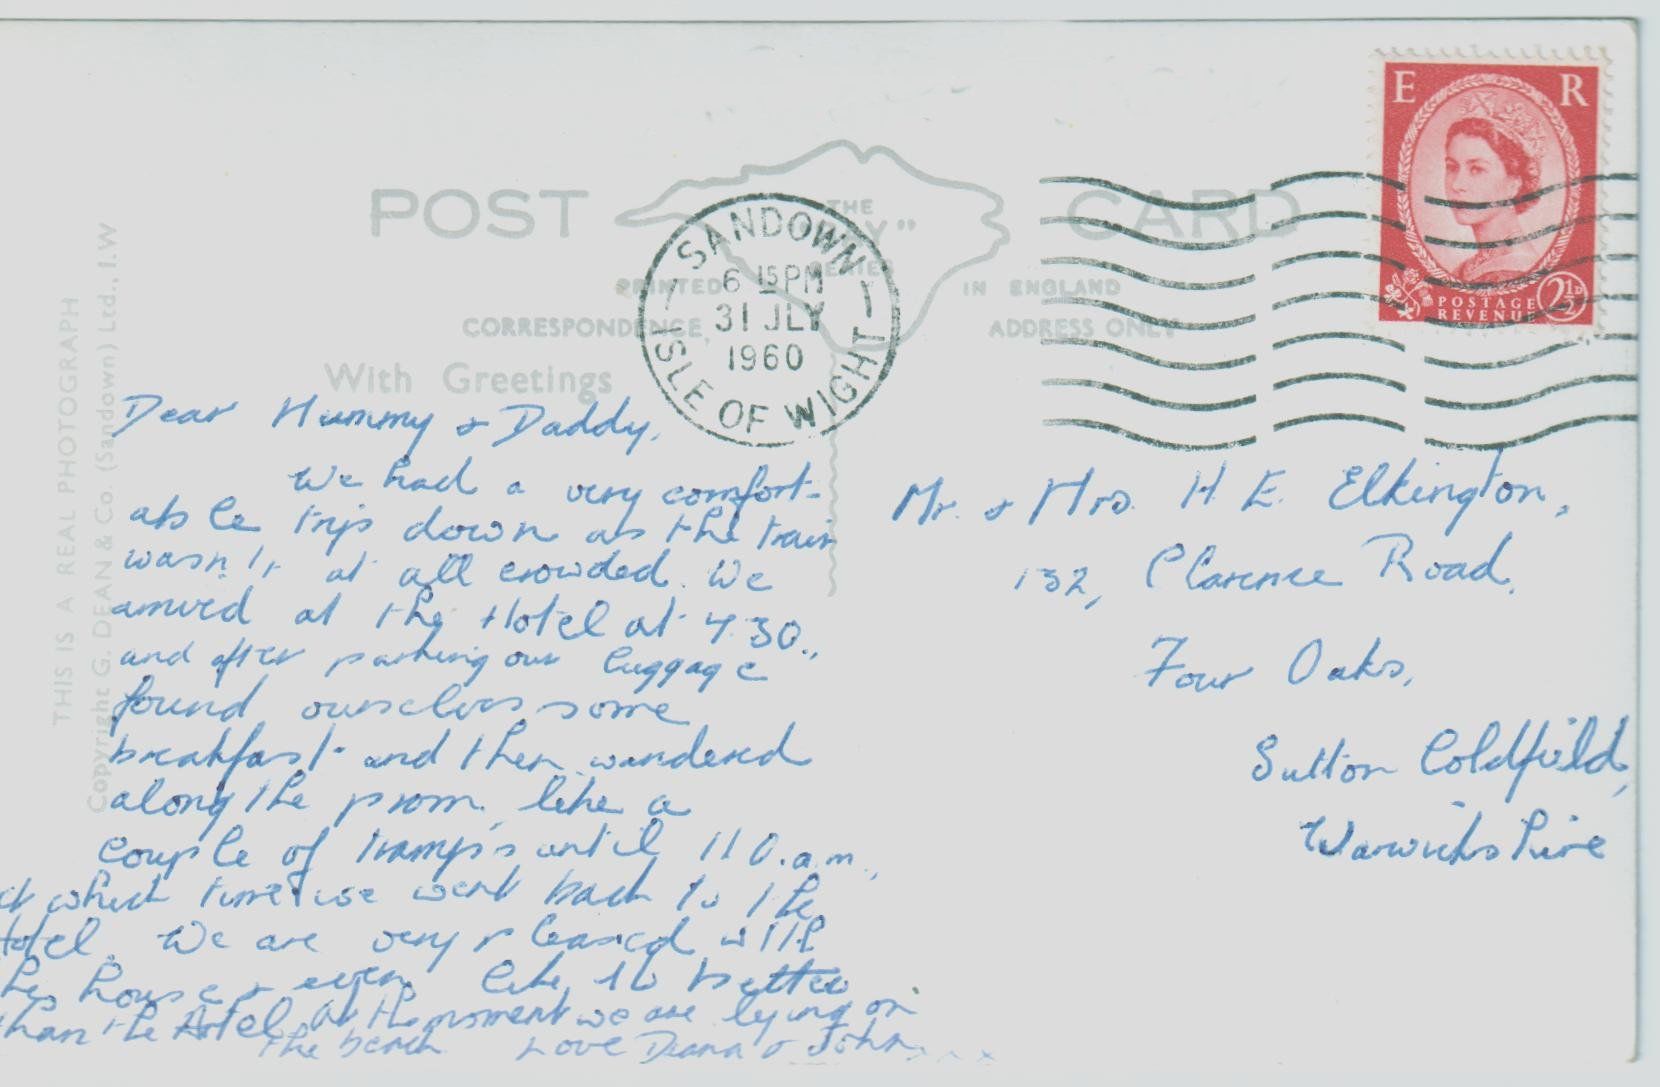 POST CARD
THE
"
Y"
SERIES
PRINTED IN ENGLAND
CORRESPONDENCE, ADDRESS ONLY
With Greetings
THIS IS A REAL PHOTOGRAPH
Copyright G. DEAN & Co. (Sandown) Ltd., I.W
SANDOWN
6 15 PM
31 JLY
1960
ISLE OF WIGHT
E R
POSTAGE
REVENUE
2½D
Dear Mummy & Daddy,
We had a very comfort-
able trip down as the train
wasn't at all crowded. We
arrived at the Hotel at 4.30.,
and after parking our luggage
found ourselves some
breakfast and then wandered
along the prom, like a
couple of tramps until 11 0.a.m.,
at which time we went back to the
Hotel. We are very pleased with
the house & even like it better
than the Hotel. At the moment we are lying on
the beach Love Diana & John xxx
Mr. & Mrs. H. E. Elkington,
132, Clarence Road,
Four Oaks,
Sutton Coldfield,
Warwickshire